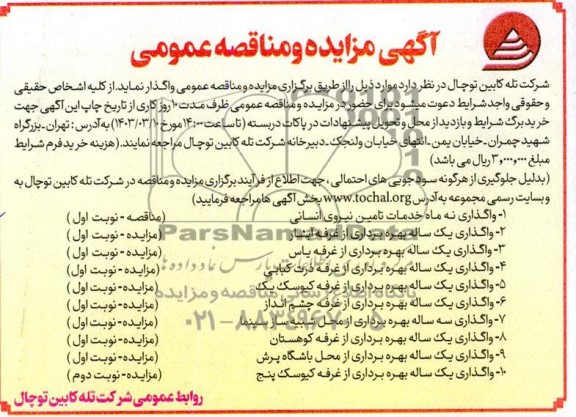 آگهی مزایده و مناقصه عمومی
شرکت تله کابین توچال در نظر دارد موارد ذیل را از طریق برگزاری مزایده و مناقصه عمومی واگذار نماید. از کلیه اشخاص حقیقی
و حقوقی واجد شرایط دعوت میشود برای حضور در مزایده و مناقصه عمومی ظرف مدت ۱۰ روز کاری از تاریخ چاپ این آگهی جهت
خرید برگ شرایط و بازدید از محل و تحویل پیشنهادات در پاکات دربسته (تا ساعت ۱۴:۰۰ مورخ ۱۴۰۳/۰۳/۱۰) به آدرس: تهران- بزرگراه
شهید چمران- خیابان یمن- انتهای خیابان ولنجک- دبیرخانه شرکت تله کابین توچال مراجعه نمایند. (هزینه خرید فرم شرایط
مبلغ ۳,۰۰۰,۰۰۰ ریال می باشد)
(بدلیل جلوگیری از هرگونه سودجویی های احتمالی، جهت اطلاع از فرآیند برگزاری مزایده و مناقصه در شرکت تله کابین توچال به
وبسایت رسمی مجموعه به آدرس www.tochal.org بخش آگهی ها مراجعه فرمایید)
۱- واگذاری نه ماه خدمات تامین نیروی انسانی (مناقصه- نوبت اول)
۲- واگذاری یک ساله بهره برداری از غرفه آبشار (مزایده- نوبت اول)
۳- واگذاری یک ساله بهره برداری از غرفه یاس (مزایده- نوبت اول)
۴- واگذاری یک ساله بهره برداری از غرفه ذرت کبابی (مزایده- نوبت اول)
۵- واگذاری یک ساله بهره برداری از غرفه کیوسک یک (مزایده- نوبت اول)
۶- واگذاری یک ساله بهره برداری از غرفه چشم انداز (مزایده- نوبت اول)
۷- واگذاری سه ساله بهره برداری از محل سینما (مزایده- نوبت اول)
۸- واگذاری یک ساله بهره برداری از غرفه کوهستان (مزایده- نوبت اول)
۹- واگذاری یک ساله بهره برداری از محل باشگاه پرش (مزایده- نوبت اول)
۱۰- واگذاری یک ساله بهره برداری از غرفه کیوسک پنج (مزایده- نوبت دوم)
روابط عمومی شرکت تله کابین توچال
ParsNamadData
پایگاه اطلاع رسانی مناقصه و مزایده
۰۲۱-۸۸۳۴۹۶۷۰-۵